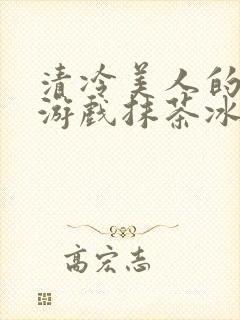 清冷美人的
游戏抹茶冰
高宏志